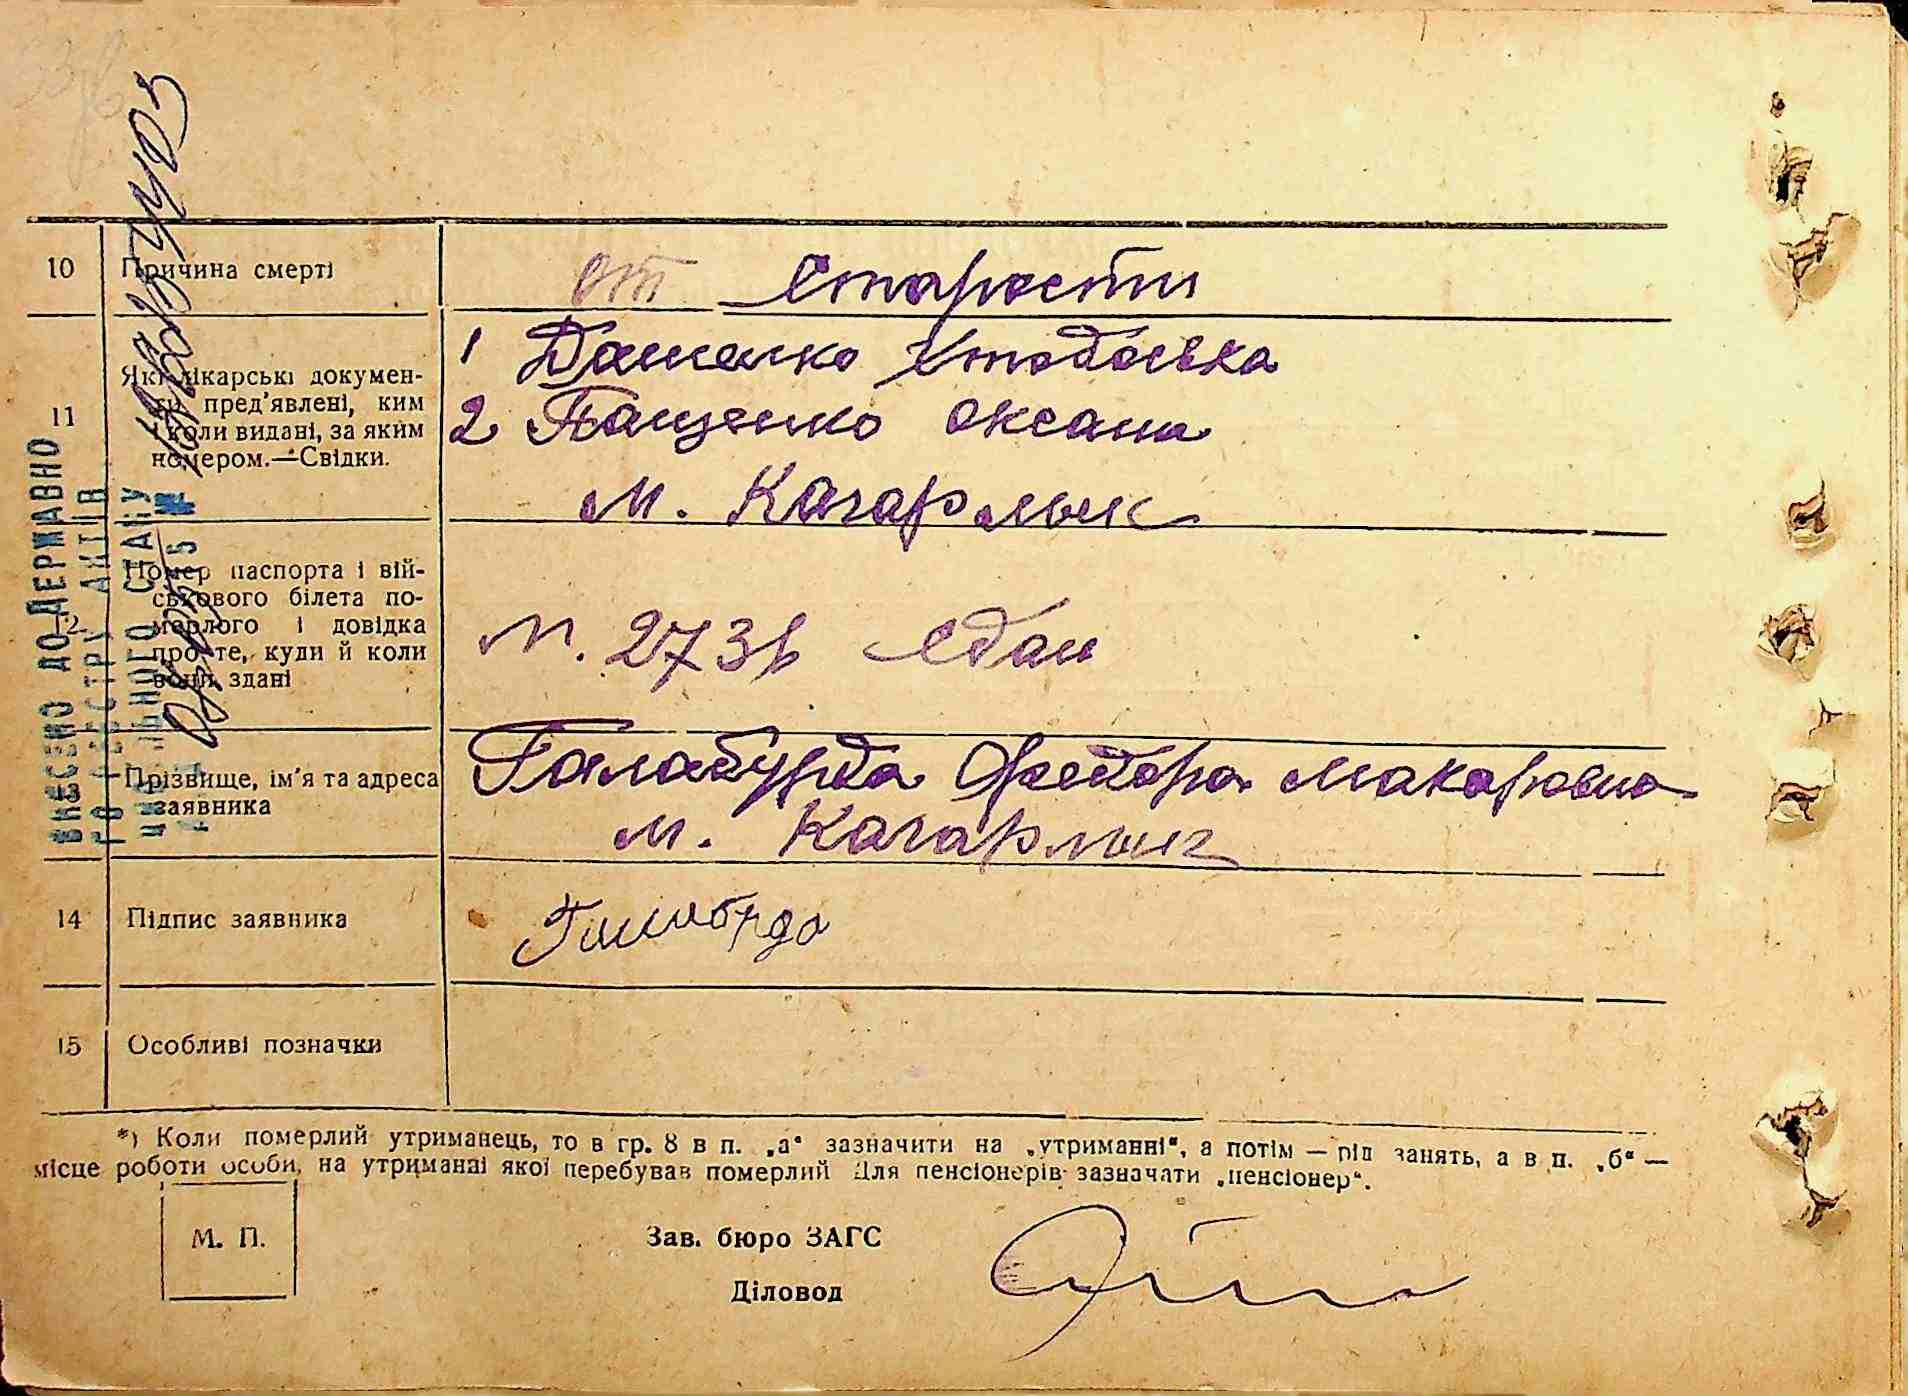 10 Причина смерті
от старости
11 Які лікарські докумен-
ти пред'явлені, ким
і коли видані, за яким
номером.—Свідки.
1 Дашенко
2 Пащенко Оксана
м. Кагарлык
12 Номер паспорта і вій-
ськового білета по-
мерлого і довідка
про те, куди й коли
вони здані
№. 273 сдан
Прізвище, ім'я та адреса
заявника
Галабурда Макаровна
м. Кагарлык
14 Підпис заявника
15 Особливі позначки
ВНЕСЕНО ДО ДЕРЖАВНО
ГО РЕЄСТРУ АКТІВ
ЦИВІЛЬНОГО СТАНУ
*) Коли померлий утриманець, то в гр. 8 в п. „а“ зазначити на „утриманні“, а потім — рід занять, а в п. „б“ —
місце роботи особи, на утриманні якої перебував померлий Для пенсіонерів зазначати „пенсіонер“.
М. П.
Зав. бюро ЗАГС
Діловод